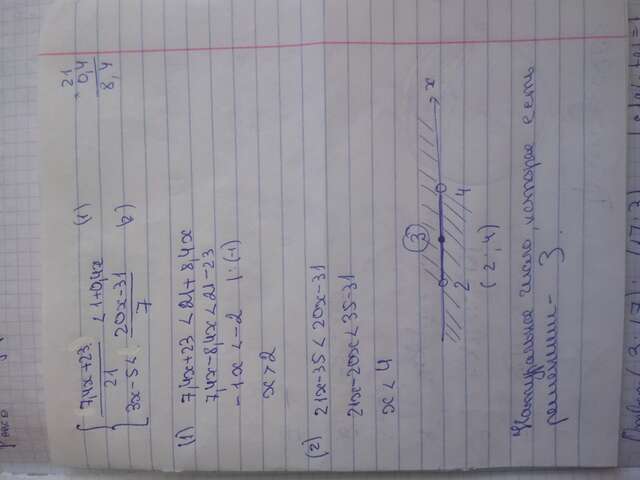 21
0,4
8,4
{ 7,4x+23/21 < 1+0,4x (1)
3x-5 < 20x-31/7 (2)
(1) 7,4x+23 < 21+8,4x
7,4x-8,4x < 21-23
-1x < -2 |:(-1)
x > 2
(2) 21x-35 < 20x-31
21x-20x < 35-31
x < 4
3
2 4 x
(2; 4)
Натуральное число, которое есть
решением- 3.